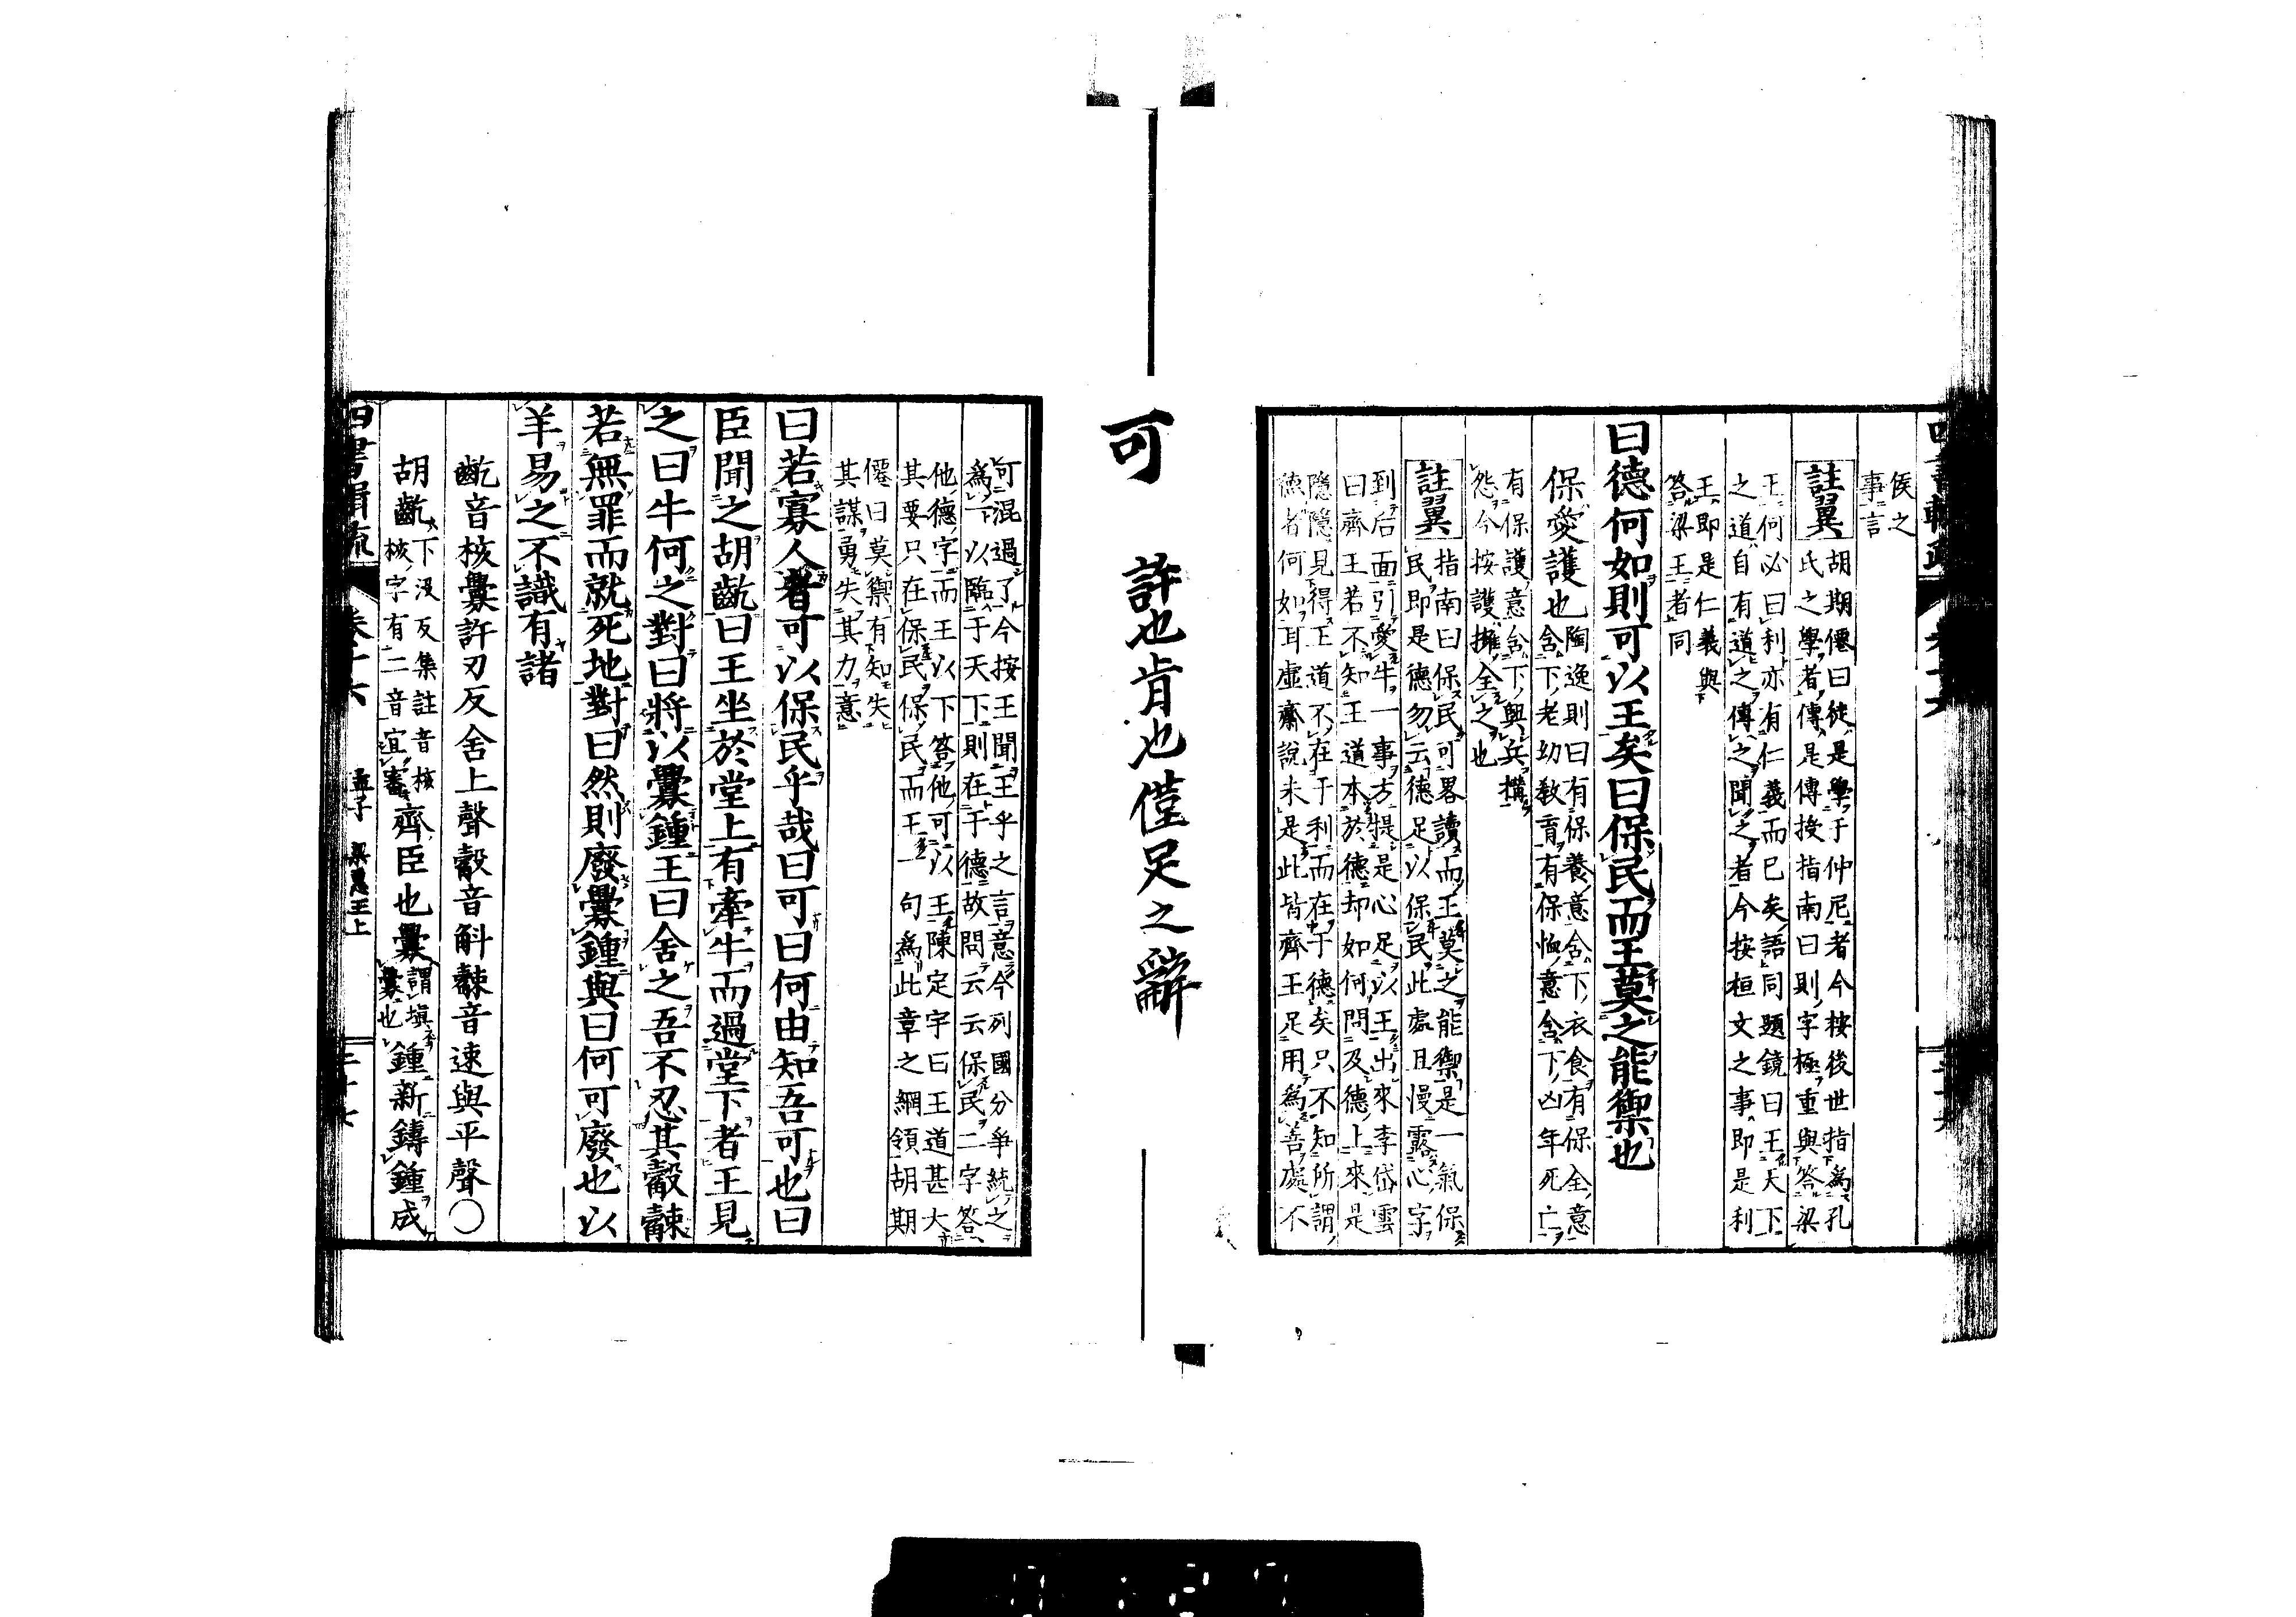 侯之
事言
註翼
胡期僊曰徒是學于仲尼者今按後世指爲孔
氏之學者傳是傳授指南曰則字極重與答梁
王何必曰利亦有仁義而已矣語同題鏡曰王天下
之道自有道之傳之聞之者今按桓文之事即是利
王即是仁義與
答梁王者同
曰德何如則可以王矣曰保民而王莫之能禦也
保愛護也
陶逸則曰有保養意含下衣食有保全意
含下老幼教育有保恤意含下凶年死亡
有保護意含下興兵搆
怨今按護擁全之也
註翼
指南曰保民可畧讀而王莫之能禦是一氣保
民即是德勿云德足以保民此處且慢露心字
到后面引愛牛一事方提是心足以王出來李岱雲
曰齊王若不知王道本於德却如何問及德上來是
隱隱見得王道不在于利而在于德矣只不知所謂
德者何如耳虛齋說未是此皆齊王足用爲善處不
可 許也肯也僅足之辭
可混過了今按王聞王乎之言意今列國分爭統之
爲一以臨于天下則在于德故問云云保民二字答
他德字而王以下答他可以王陳定宇曰王道甚大
其要只在保民保民而王一句爲此章之綱領胡期
僊曰莫禦有知失
其謀勇失其力意
曰若寡人者可以保民乎哉曰可曰何由知吾可也曰
臣聞之胡齕曰王坐於堂上有牽牛而過堂下者王見
之曰牛何之對曰將以釁鍾王曰舍之吾不忍其觳觫
若無罪而就死地對曰然則廢釁鍾與曰何可廢也以
羊易之不識有諸
齕音核釁許刃反舍上聲觳音斛觫音速與平聲〇
胡齕
下沒反集註音核
核字有二音宜審
齊臣也釁
謂塡
釁也
鍾新鑄鍾成
孟子 梁惠王上